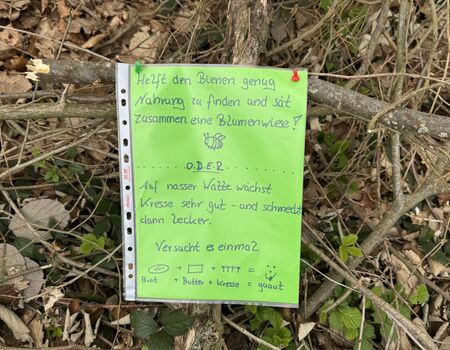 Helft den Bienen genug
Nahrung zu finden und sät
zusammen eine Blumenwiese!
O.D.E.R.
Auf nasser Watte wächst
Kresse sehr gut - und schmeckt
dann lecker.
Versucht es einmal
+ + =
Brot + Butter + Kresse = guuut